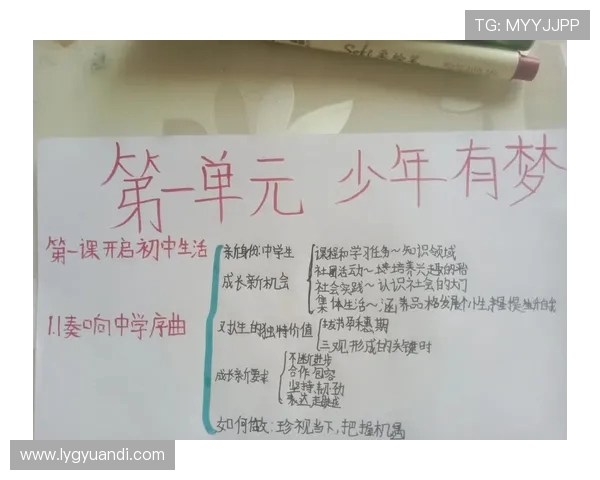 TG: MYYJJPP
第一单元 少年有梦
第一课开启初中生活
1.1奏响中学序曲
新身份:中学生
成长新机会
课程和学习任务~知识领域
社团活动~培养兴趣的
社会实践~认识社会的大门
集体生活~涵养品格发展个性
对人生的独特价值
拔节孕穗期
三观形成的关键时
成长新要求
不断进步
合作包容
坚持
表达
如何做:珍视当下,把握机遇
www.lygyuandi.com